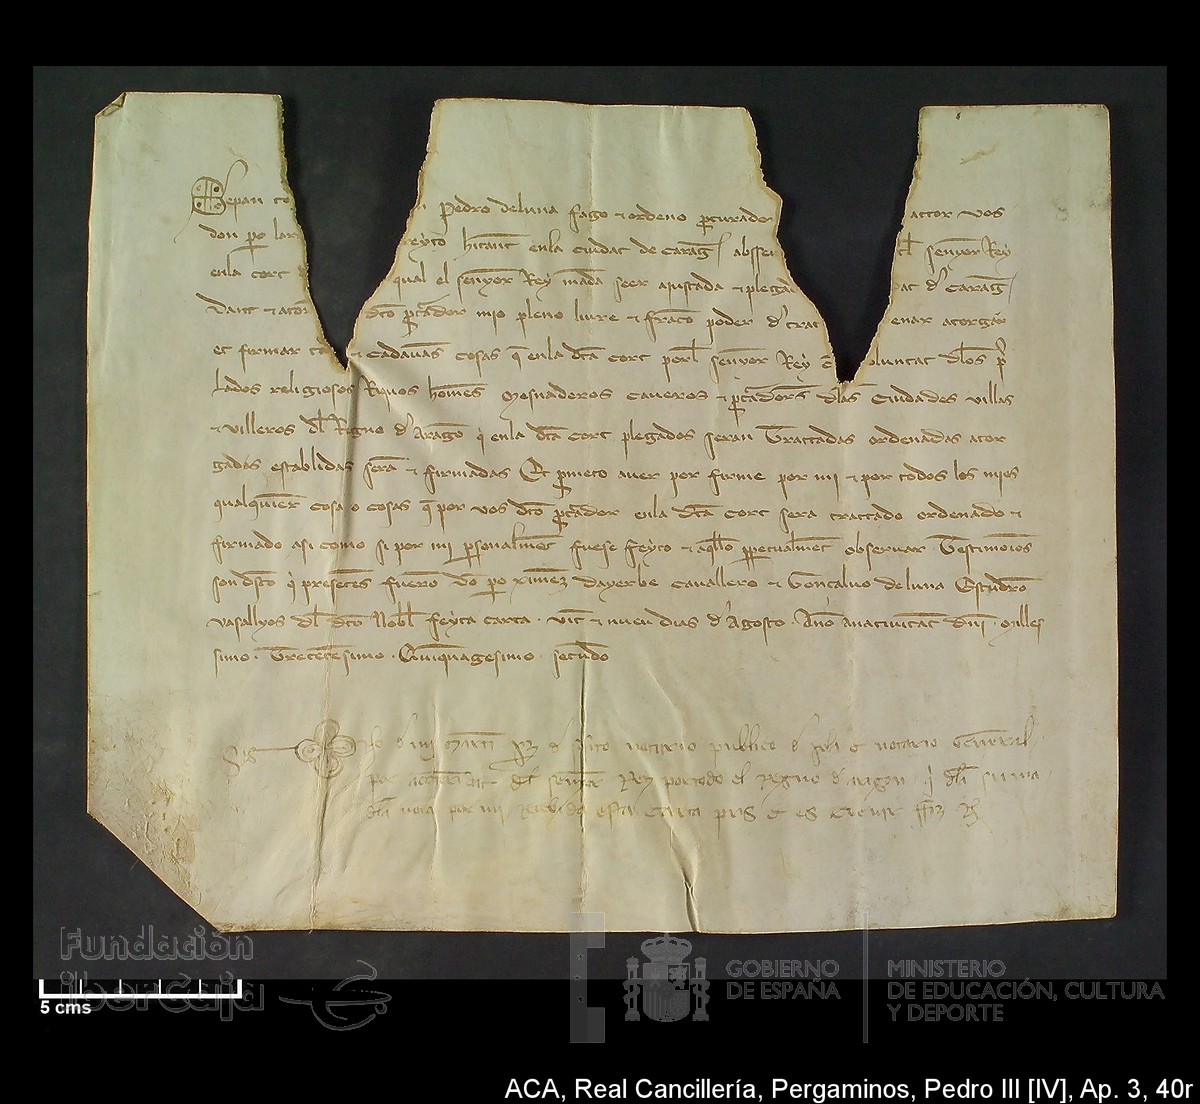 Sepan to Pedro deluna fago & ordeno procurador actor vos
don pero lar feyto hitant enla ciudat de Carag absen l senyor Rey
enla cort qual el senyor Rey manda seer ajustada & plega at d Carag
Dant & ator dto procador mio pleno livre & franco poder d trac enar atorgar
et firmar to & cadaunas cosas q enla dta cort perl senyor Rey voluntat dlos p
lados religiosos Riquos homes Mesnaderos Caveros & procadors dlas Ciudades villas
& villeros dl Regno d Arago q enla dta cort plegados seran Tractadas ordenadas ator
gadas establidas sera & firmadas Et prometo aver por firme por mi & por todos los mios
qualquiere cosa o cosas q por vos dto procador enla dta cort sera tractado ordenado &
firmado asi como si por mi personalment fuese feyto & aqllo perpetualment observar Testimonios
son dsto q presetes fuero do pero Ximez dayerbe Cavallero & Goncalvo de luna Escudro
vasallyos dl dto Nobl feyta carta · vint & nueu dias d Agosto · Ano anativitat dni Milles
simo · Trecetesimo · Quiquagesimo · secudo
Sig no d mi notario publico d e notario General
por actoridat del senyor Rey por todo el regno d aragon q
dta nota por mi esta carta e es
Fundación
ibercaja
5 cms
GOBIERNO
DE ESPAÑA
MINISTERIO
DE EDUCACIÓN, CULTURA
Y DEPORTE
ACA, Real Cancillería, Pergaminos, Pedro III [IV], Ap. 3, 40r